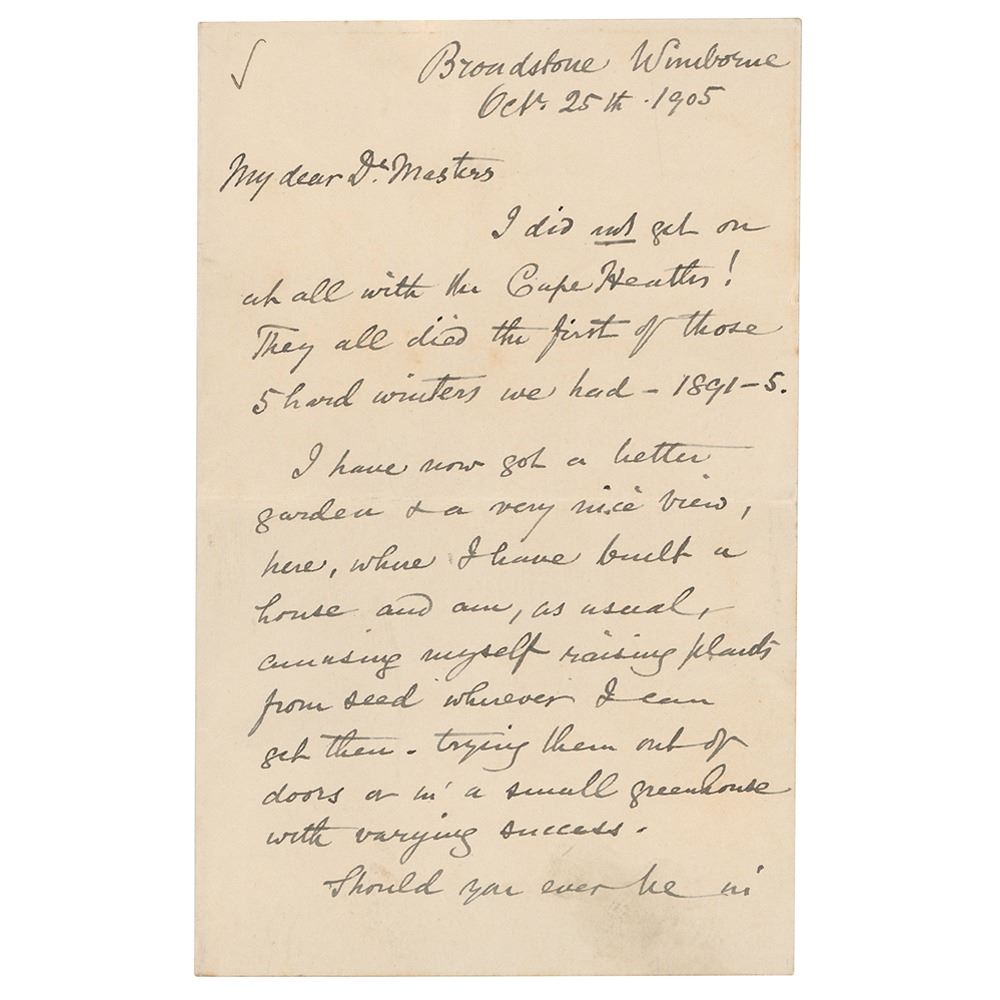 Broadstone Wimborne
Octr. 25th. 1905
My dear Dr. Masters
I did not get on
at all with the Cape Heaths!
They all died the first of those
5 hard winters we had - 1891-5.
I have now got a better
garden & a very nice view,
here, where I have built a
house and am, as usual,
amusing myself raising plants
from seed wherever I can
get them - trying them out of
doors or in a small greenhouse
with varying success.
Should you ever be in